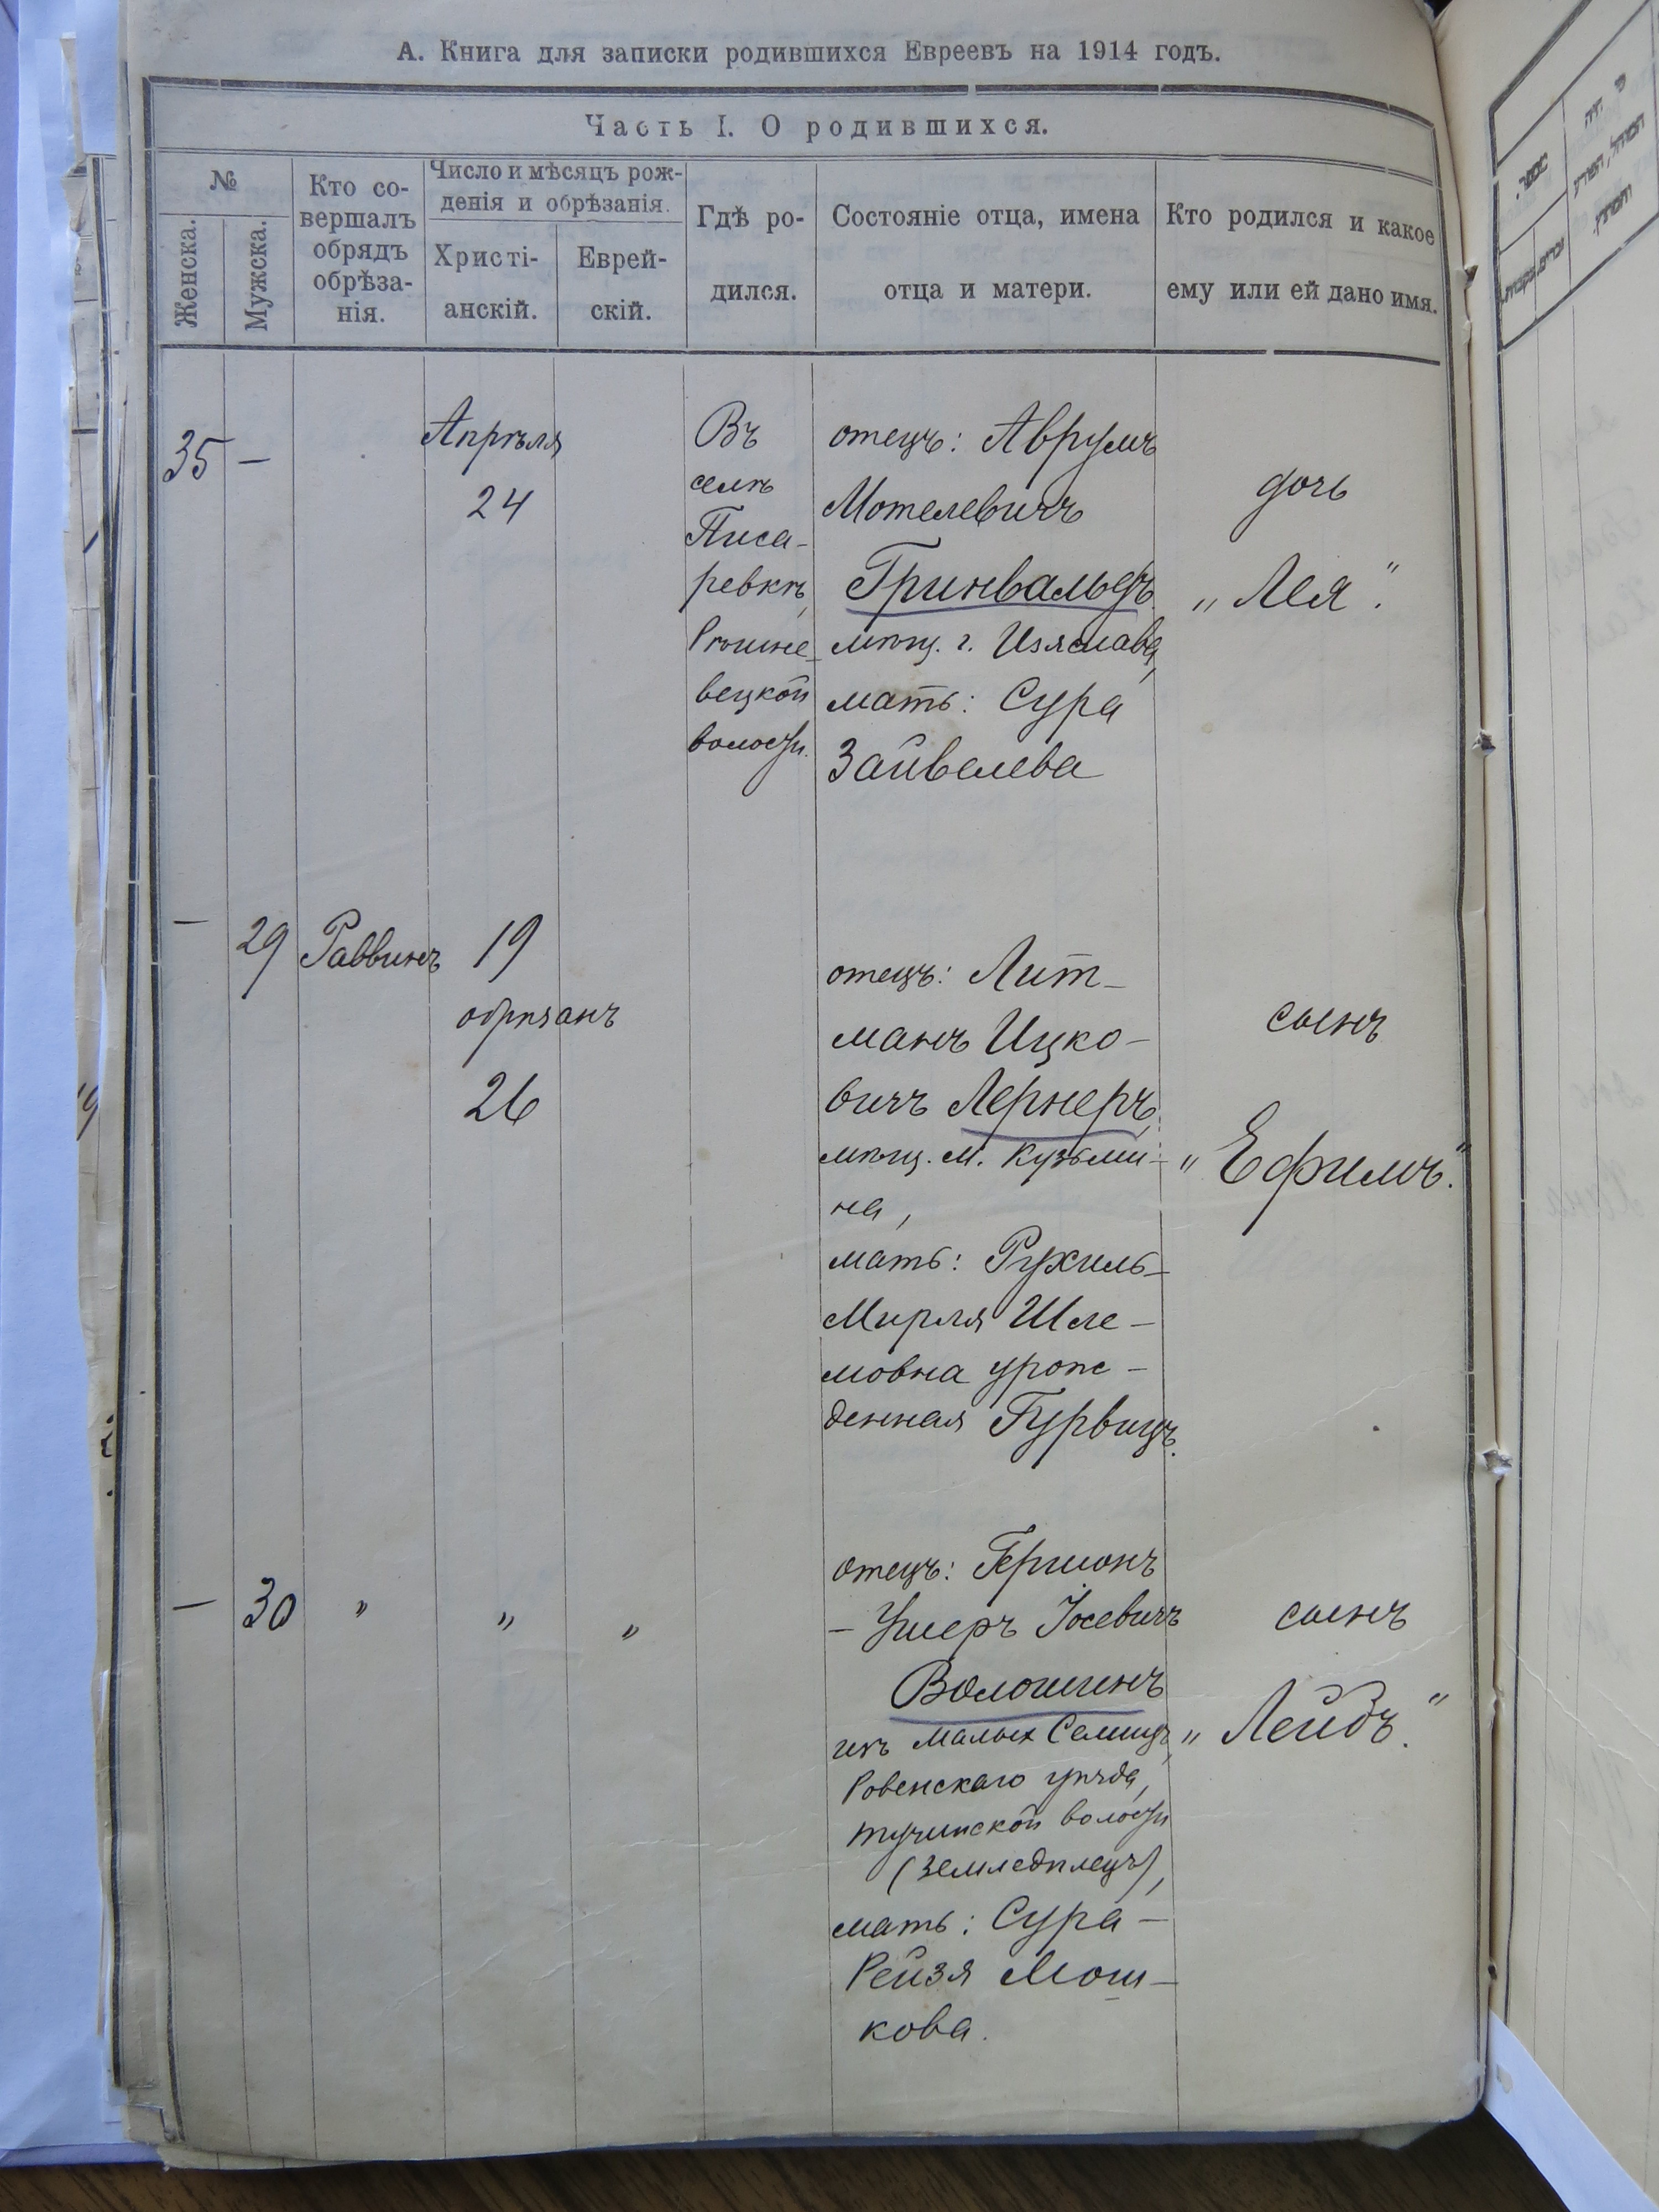 А. Книга для записки родившихся Евреевъ на 1914 годъ.
Часть I. О родившихся.
№
Женска.
Мужска.
Кто со-
вершалъ
обрядъ
обрѣза-
нія.
Число и мѣсяцъ рож-
денія и обрѣзанія.
Христі-
анскій.
Еврей-
скій.
Гдѣ ро-
дился.
Состояніе отца, имена
отца и матери.
Кто родился и какое
ему или ей дано имя.
35 —
Апрѣля
24
Въ
селѣ
Писа-
ревкѣ,
вецкой
волости.
отецъ: Аврумъ
Мотелевичъ
Гринвальдъ
мѣщ. г. Изяслава,
мать: Сура
Зайвелева
дочь
„Лея".
— 29 Раввинъ
19
обрѣзанъ
26
отецъ: Лит-
манъ Ицко-
вичъ Лернеръ,
мѣщ. м. Кузьми-
на,
мать: Рухиль-
Мирля Шле-
мовна урож-
денная Гурвицъ.
сынъ
„Ефимъ".
— 30 " " "
отецъ: Гершонъ
- Ушеръ Іосевичъ
Волошинъ
изъ Малых Селищъ,
Ровенскаго уѣзда,
тучинской волости
(земледѣлецъ),
мать: Сура-
Рейзя Мош-
кова.
сынъ
„Лейбъ".